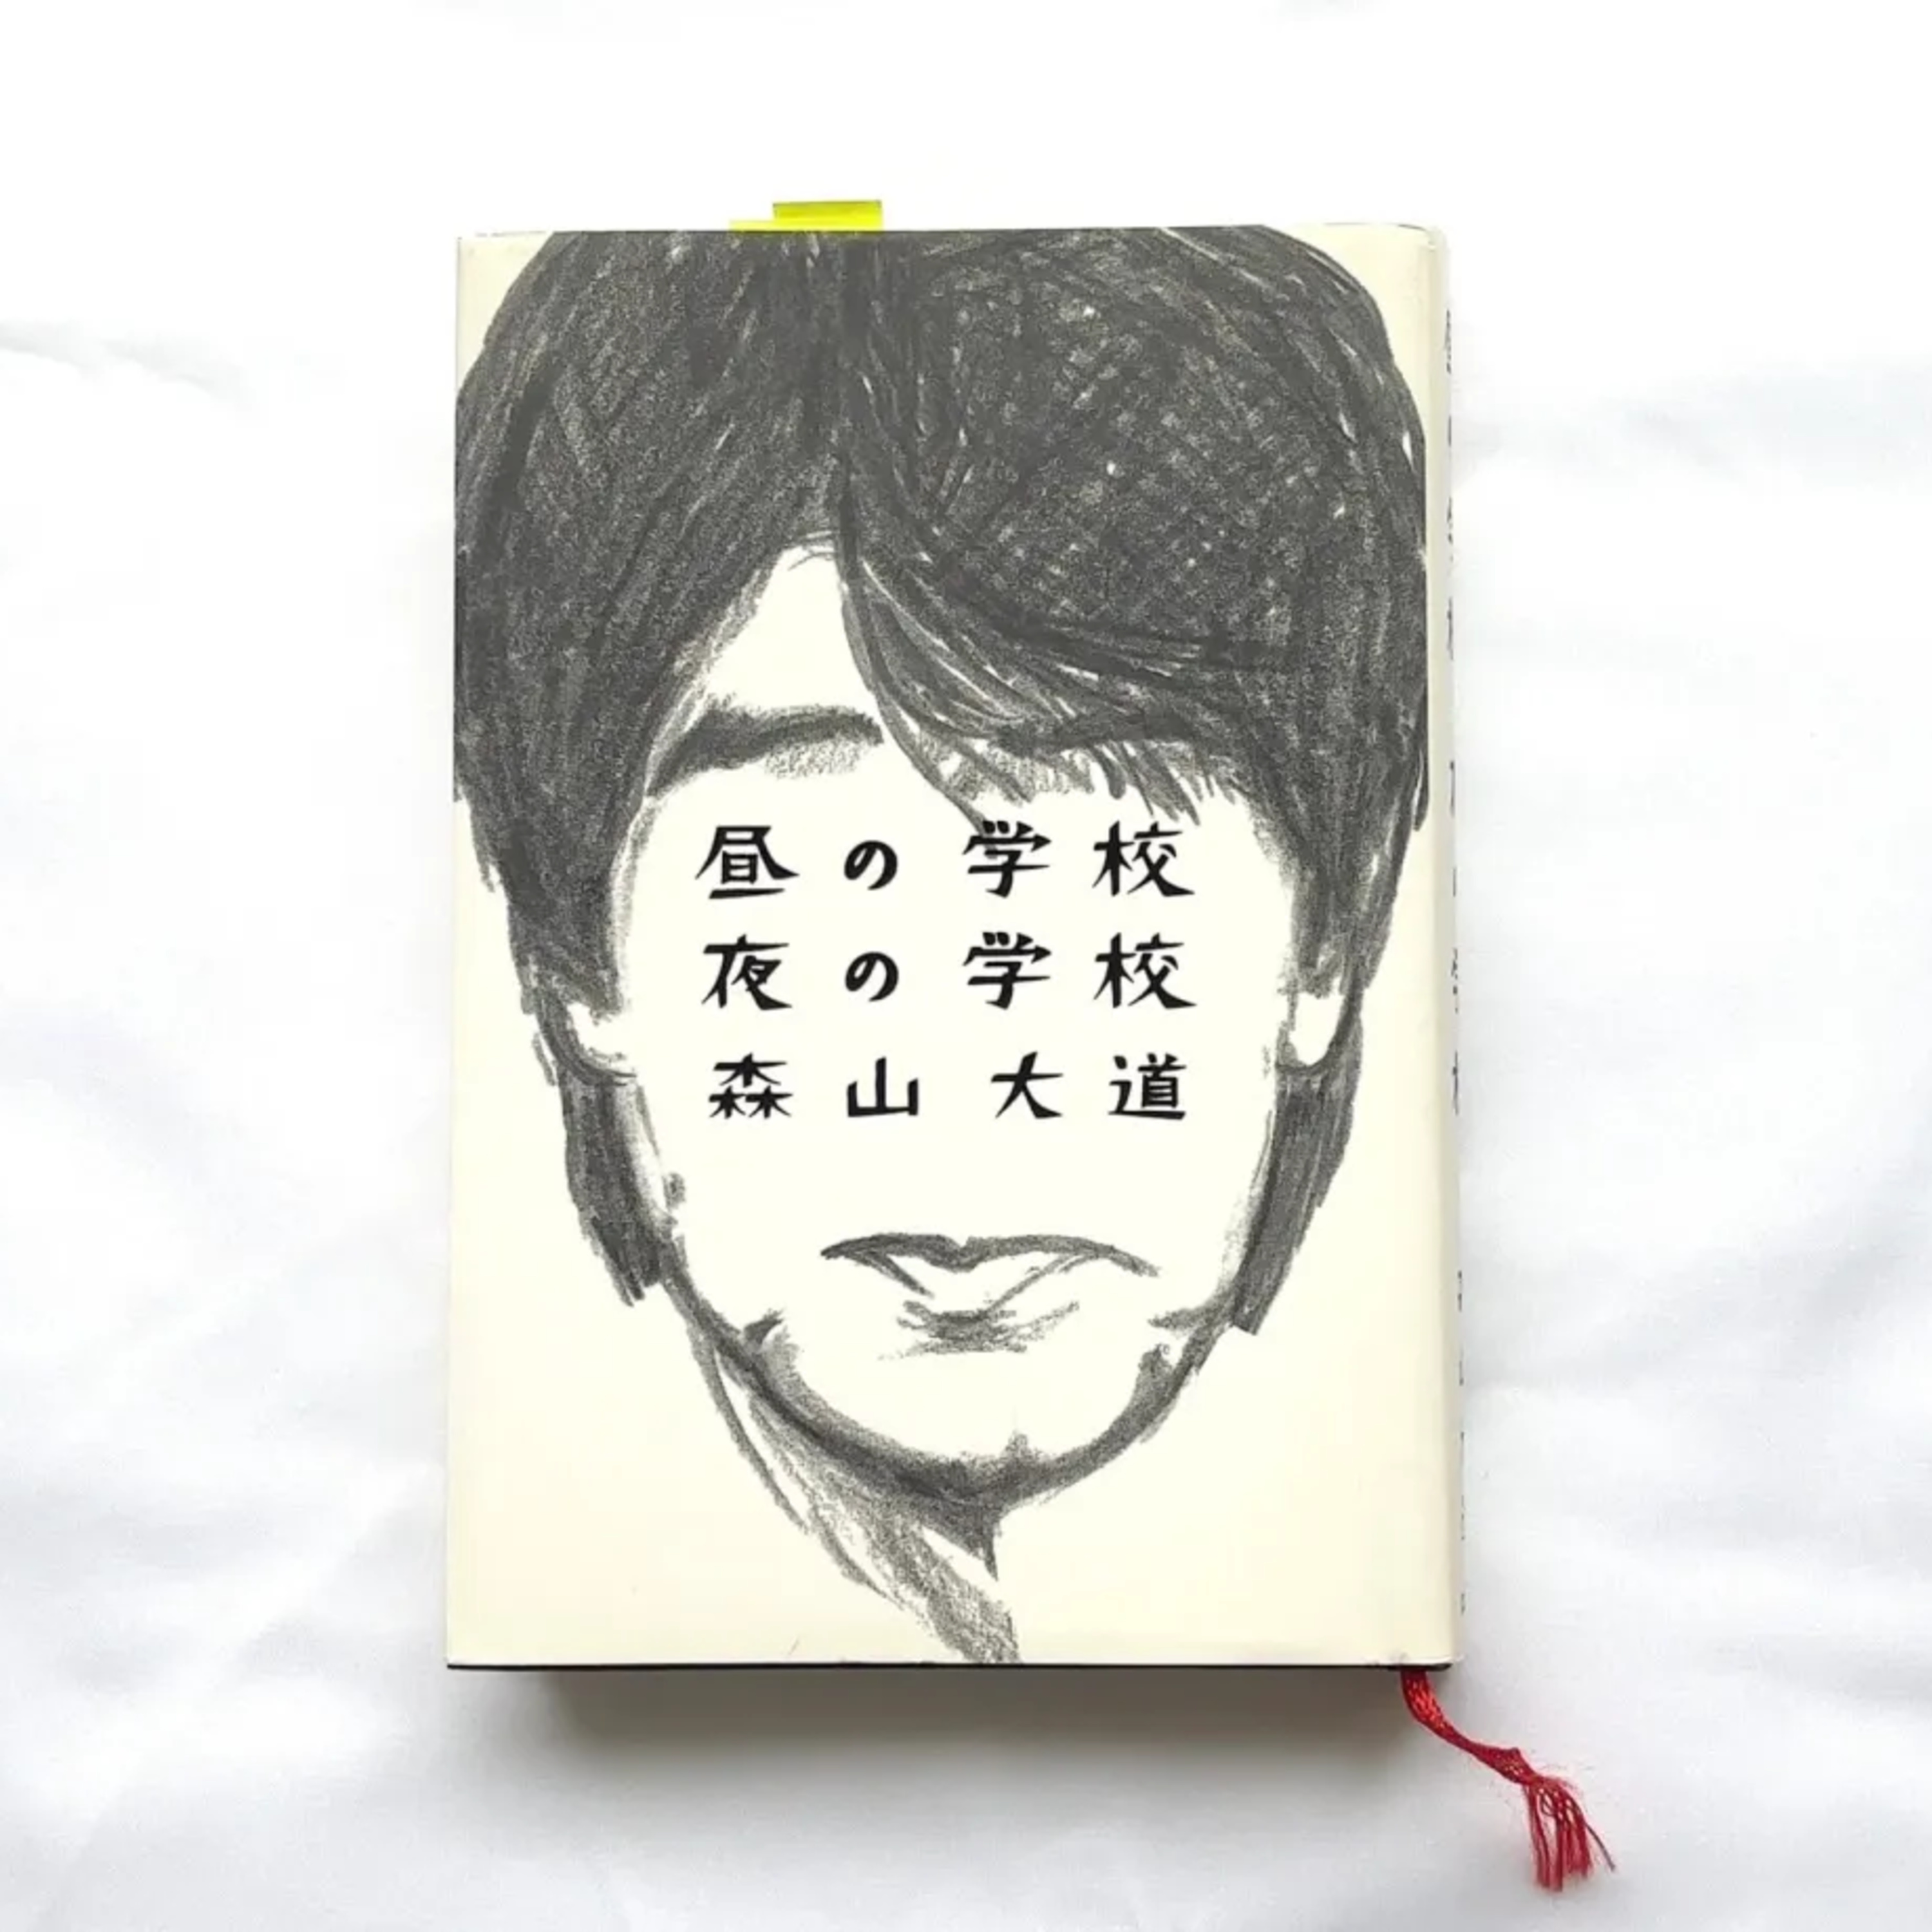 昼の学校
夜の学校
森山大道